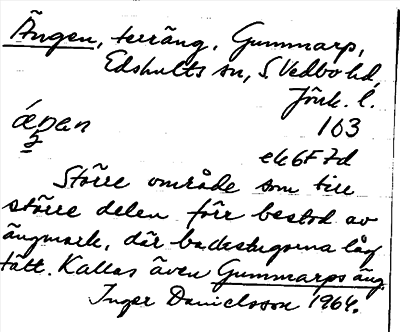 Ängen, terräng, Gummarp,
Edshults sn, S. Vedbo hd,
Jönk. l.
103
ek 6F7d
Större område som till
större delen förr bestod av
ängmark, där backstugorna låg
tätt. Kallas även Gummarps äng.
Inger Danielsson 1964.